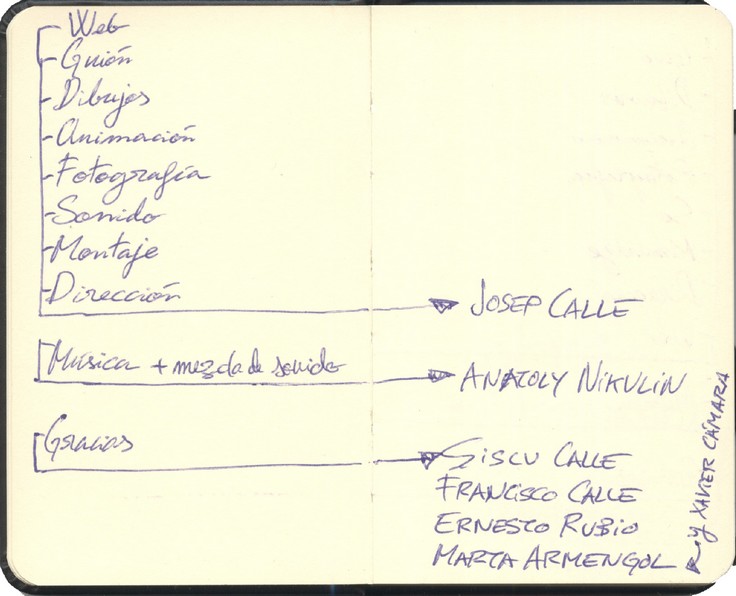 Web
- Guión
- Dibujos
- Animación
- Fotografía
- Sonido
- Montaje
- Dirección
JOSEP CALLE
Música + mezcla de sonido
ANATOLY NIKULIN
Gracias
SISCU CALLE
FRANCISCO CALLE
ERNESTO RUBIO
MARTA ARMENGOL
y XAVIER CÁMARA